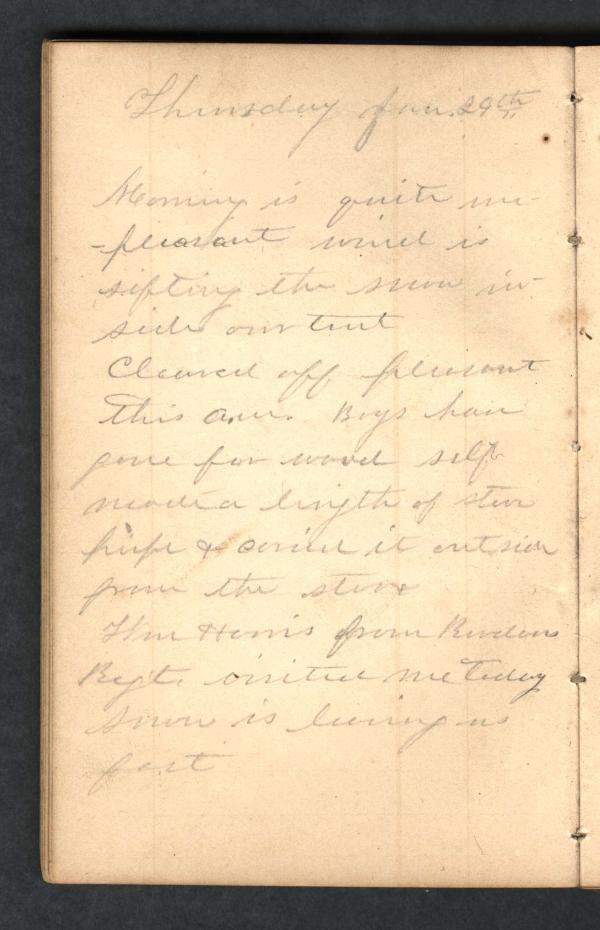 Thursday Jan. 29th
Morning is quite un-
-pleasant wind is
sifting the snow in-
side our tent
Cleared off pleasant
this a.m. Boys have
gone for wood self
made a length of stove
pipe & carried it outside
from the stove
Wm Harris from Berdans
Regt. visited me today
Snow is leaving us
fast